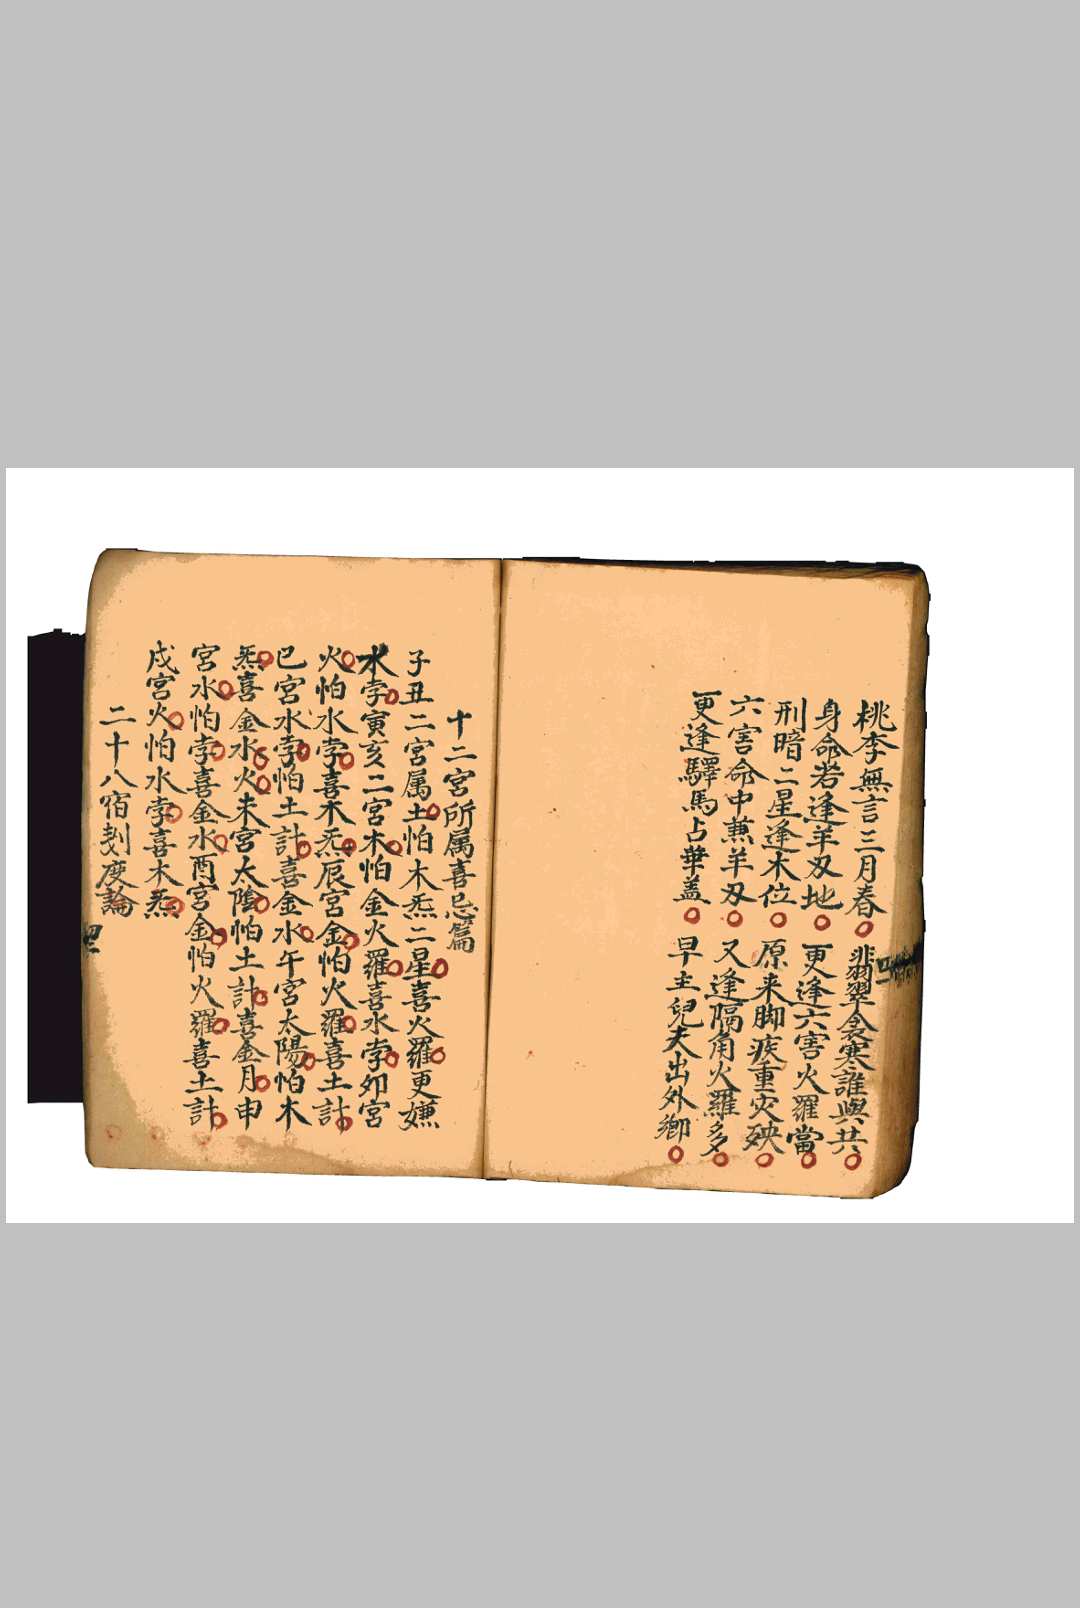 桃李無言三月春 翡翠衾寒誰與共
身命若逢羊刃地 更逢六害火羅當
刑暗二星逢木位 原来脚疾重灾殃
六害命中兼羊刃 又逢隔角火羅多
更逢驛馬占華盖 早主兒夫出外鄉
十二宮所属喜忌篇
子丑二宮属土怕木炁二星喜火羅更嫌
水孛寅亥二宮木怕金火羅喜水孛夘宮
火怕水孛喜木炁辰宮金怕火羅喜土計
巳宮水孛怕土計喜金水午宮太陽怕木
炁喜金水火未宮太陰怕土計喜金月申
宮水怕孛喜金水酉宮金怕火羅喜土計
戍宮火怕水孛喜木炁
二十八宿刼度論